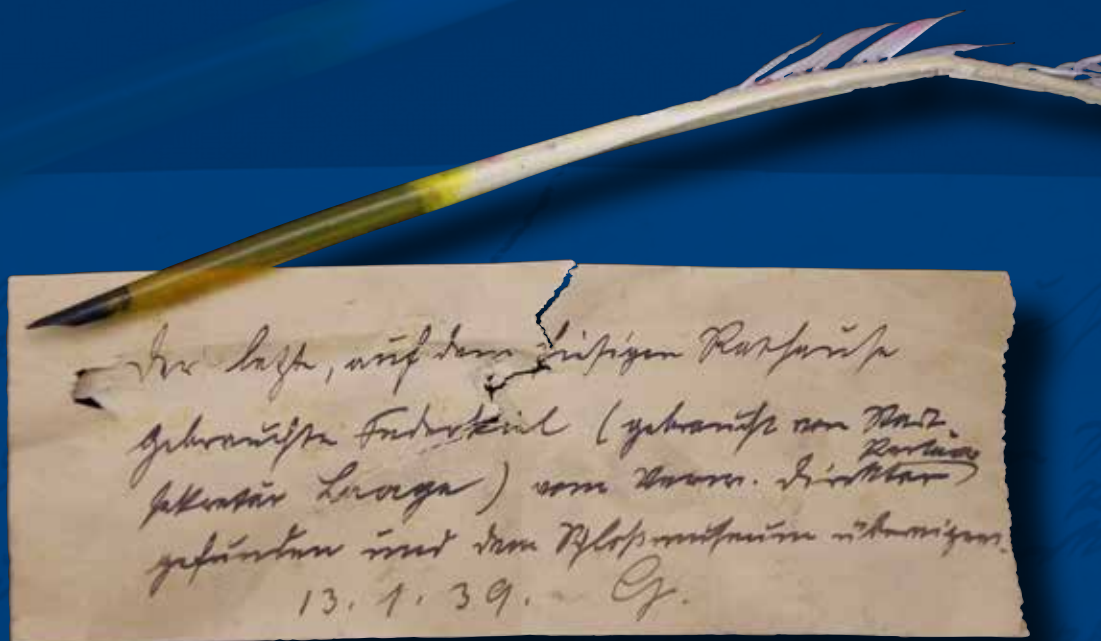 Der letzte, auf dem hiesigen Rathause
gebrauchte Federkiel (gebraucht von Stadt-
sekretär Laage) vom Verw. Direktor
gefunden und dem Schloßmuseum übereignet.
13. 1. 39. G.